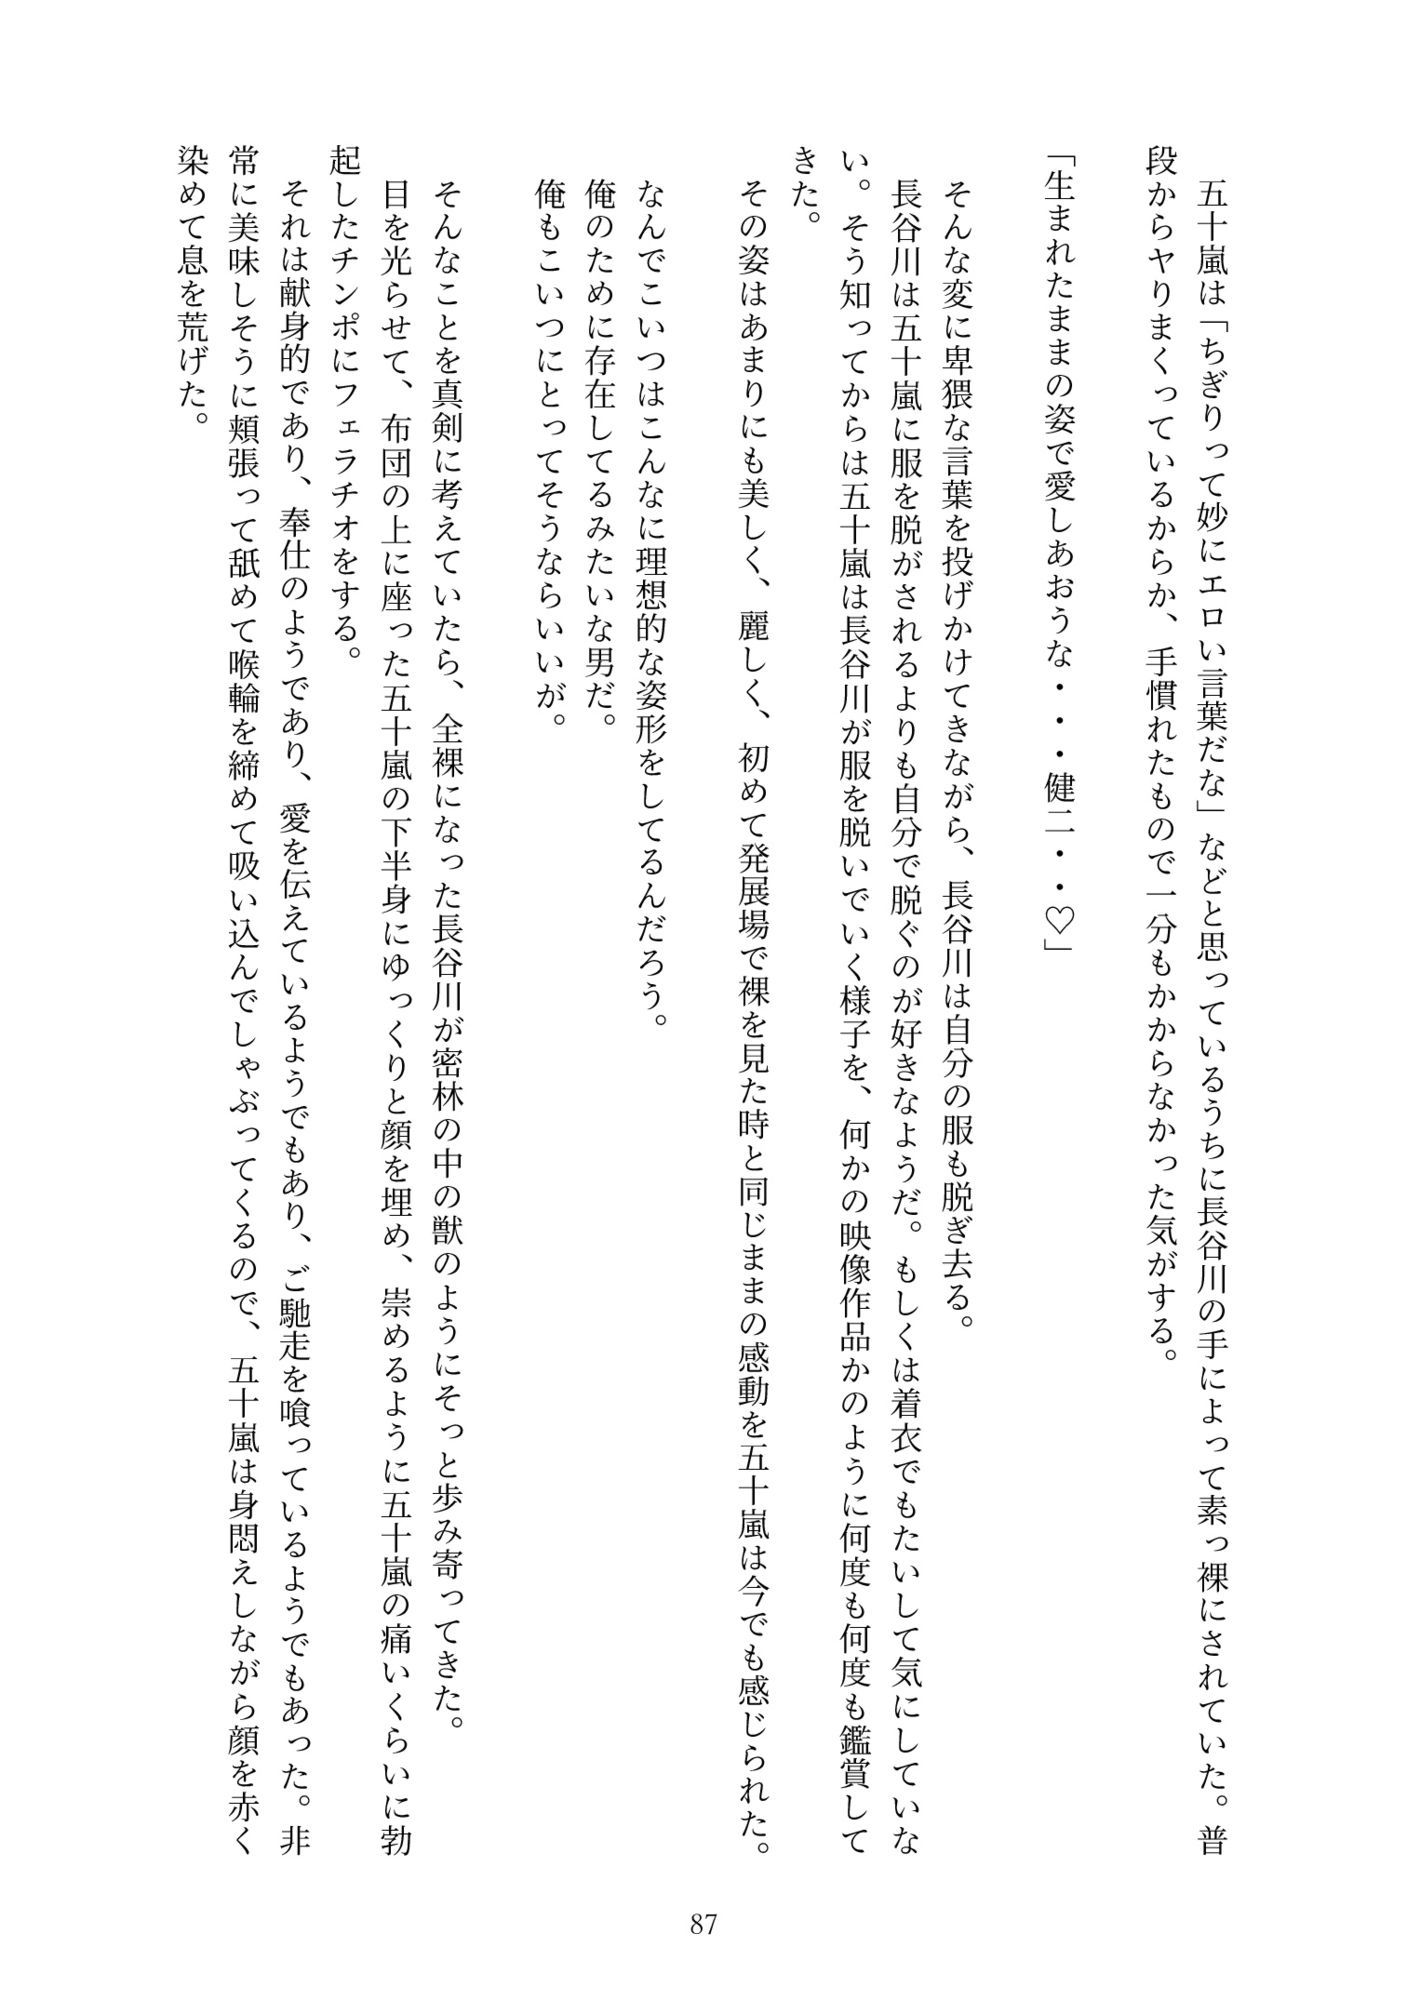 五十嵐は「ちぎりって妙にエロい言葉だな」などと思っているうちに長谷川の手によって素っ裸にされていた。普
段からヤりまくっているからか、手慣れたもので一分もかからなかった気がする。
「生まれたままの姿で愛しあおうな・・・健二・・♡」
　そんな変に卑猥な言葉を投げかけてきながら、長谷川は自分の服も脱ぎ去る。
　長谷川は五十嵐に服を脱がされるよりも自分で脱ぐのが好きなようだ。もしくは着衣でもたいして気にしていな
い。そう知ってからは五十嵐は長谷川が服を脱いでいく様子を、何かの映像作品かのように何度も何度も鑑賞して
きた。
　その姿はあまりにも美しく、麗しく、初めて発展場で裸を見た時と同じままの感動を五十嵐は今でも感じられた。
　なんでこいつはこんなに理想的な姿形をしてるんだろう。
　俺のために存在してるみたいな男だ。
　俺もこいつにとってそうならいいが。
　そんなことを真剣に考えていたら、全裸になった長谷川が密林の中の獣のようにそっと歩み寄ってきた。
　目を光らせて、布団の上に座った五十嵐の下半身にゆっくりと顔を埋め、崇めるように五十嵐の痛いくらいに勃
起したチンポにフェラチオをする。
　それは献身的であり、奉仕のようであり、愛を伝えているようでもあり、ご馳走を喰っているようでもあった。非
常に美味しそうに頬張って舐めて喉輪を締めて吸い込んでしゃぶってくるので、五十嵐は身悶えしながら顔を赤く
染めて息を荒げた。
87